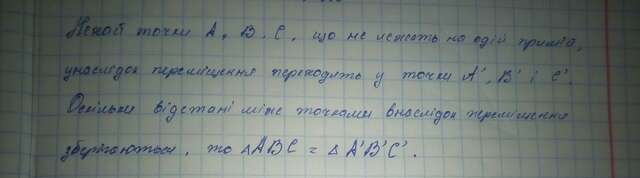 Нехай точки A, B, C, що не лежать на одій прямій,
унаслідок переміщення переходять у точки A', B' і C'.
Оскільки відстані між точками внаслідок переміщення
зберігаються, то △ABC = △A'B'C'.